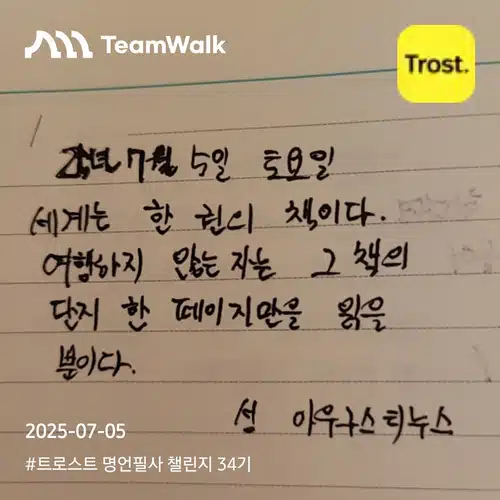 TeamWalk
Trost.
25년 7월 5일 토요일
세계는 한 권의 책이다.
여행하지 않는 자는 그 책의
단지 한 페이지만을 읽을
뿐이다.
성 아우구스티누스
2025-07-05
#트로스트 명언필사 챌린지 34기